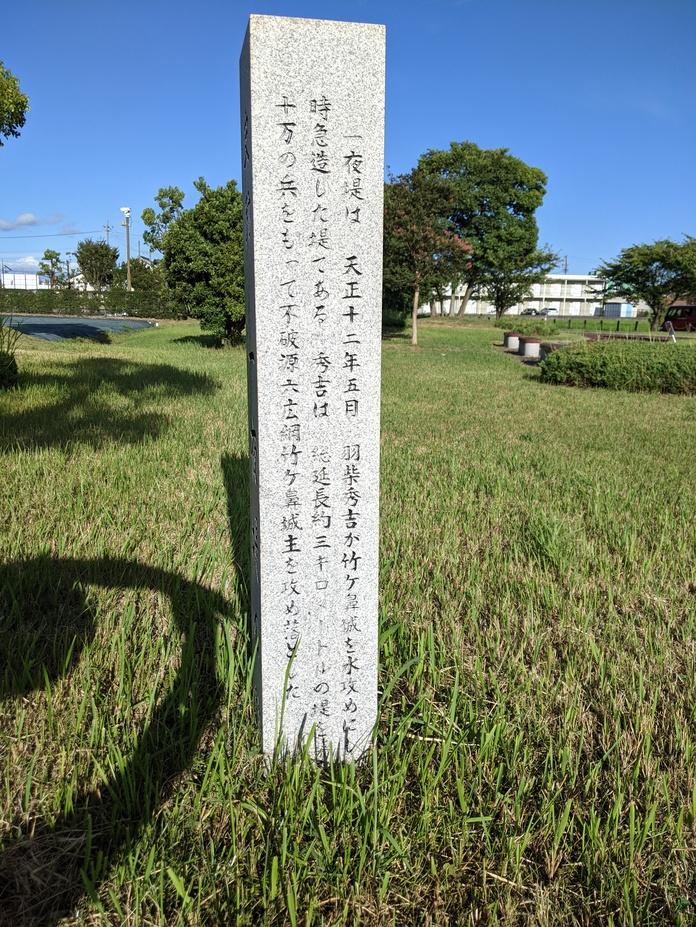 一夜堤は 天正十二年五月 羽柴秀吉が竹ケ鼻城を水攻めにし
時急造した堤である 秀吉は 総延長約三キロメートルの堤と
十万の兵をもって不破源六広綱竹ケ鼻城主を攻め落とした